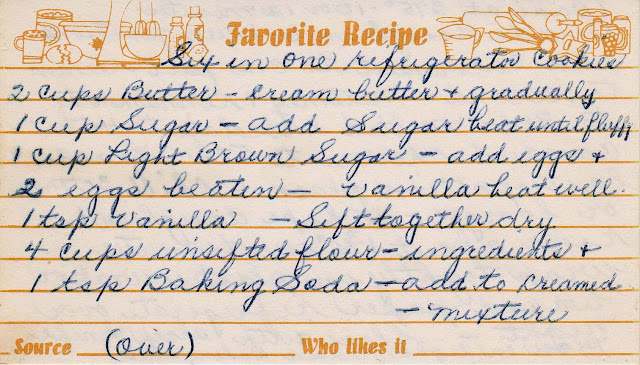 Favorite Recipe
Six in one refrigerator Cookies
2 cups Butter - cream butter + gradually
1 cup Sugar - add Sugar beat until fluffy
1 cup Light Brown Sugar - add eggs +
2 eggs beaten - Vanilla beat well.
1 tsp Vanilla - Sift together dry
4 cups unsifted flour - ingredients +
1 tsp Baking Soda - add to creamed
- mixture
Source (Over) Who likes it